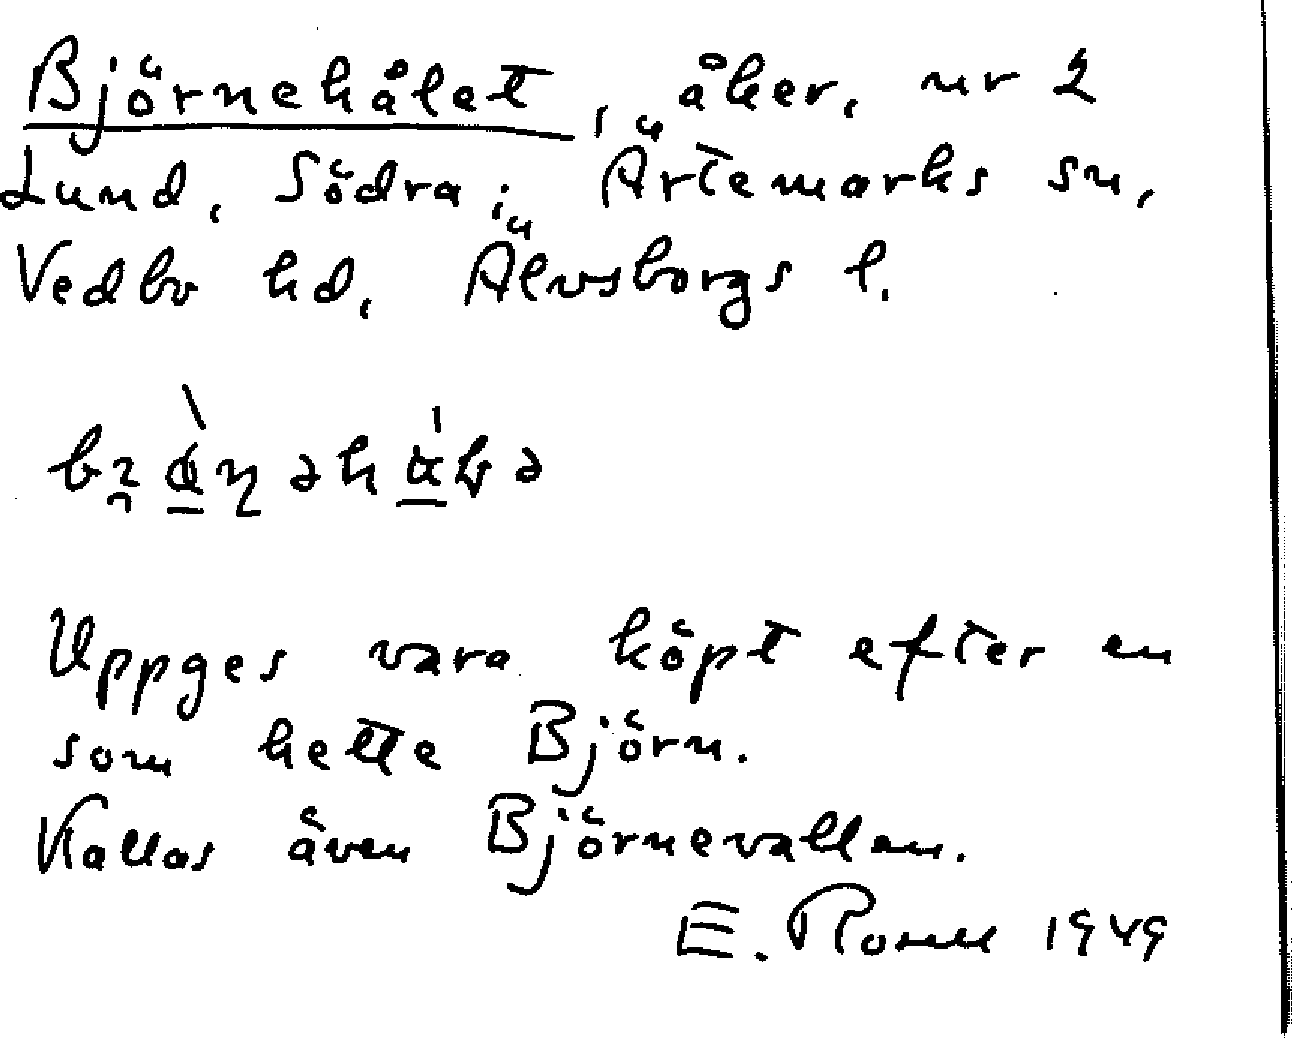 Björnehålet, åker, nr 2
Lund, Södra; Ärtemarks sn,
Vedbo hd, Älvsborgs l.
Uppges vara köpt efter en
som hette Björn.
Kallas även Björnevallen.
E. 1949